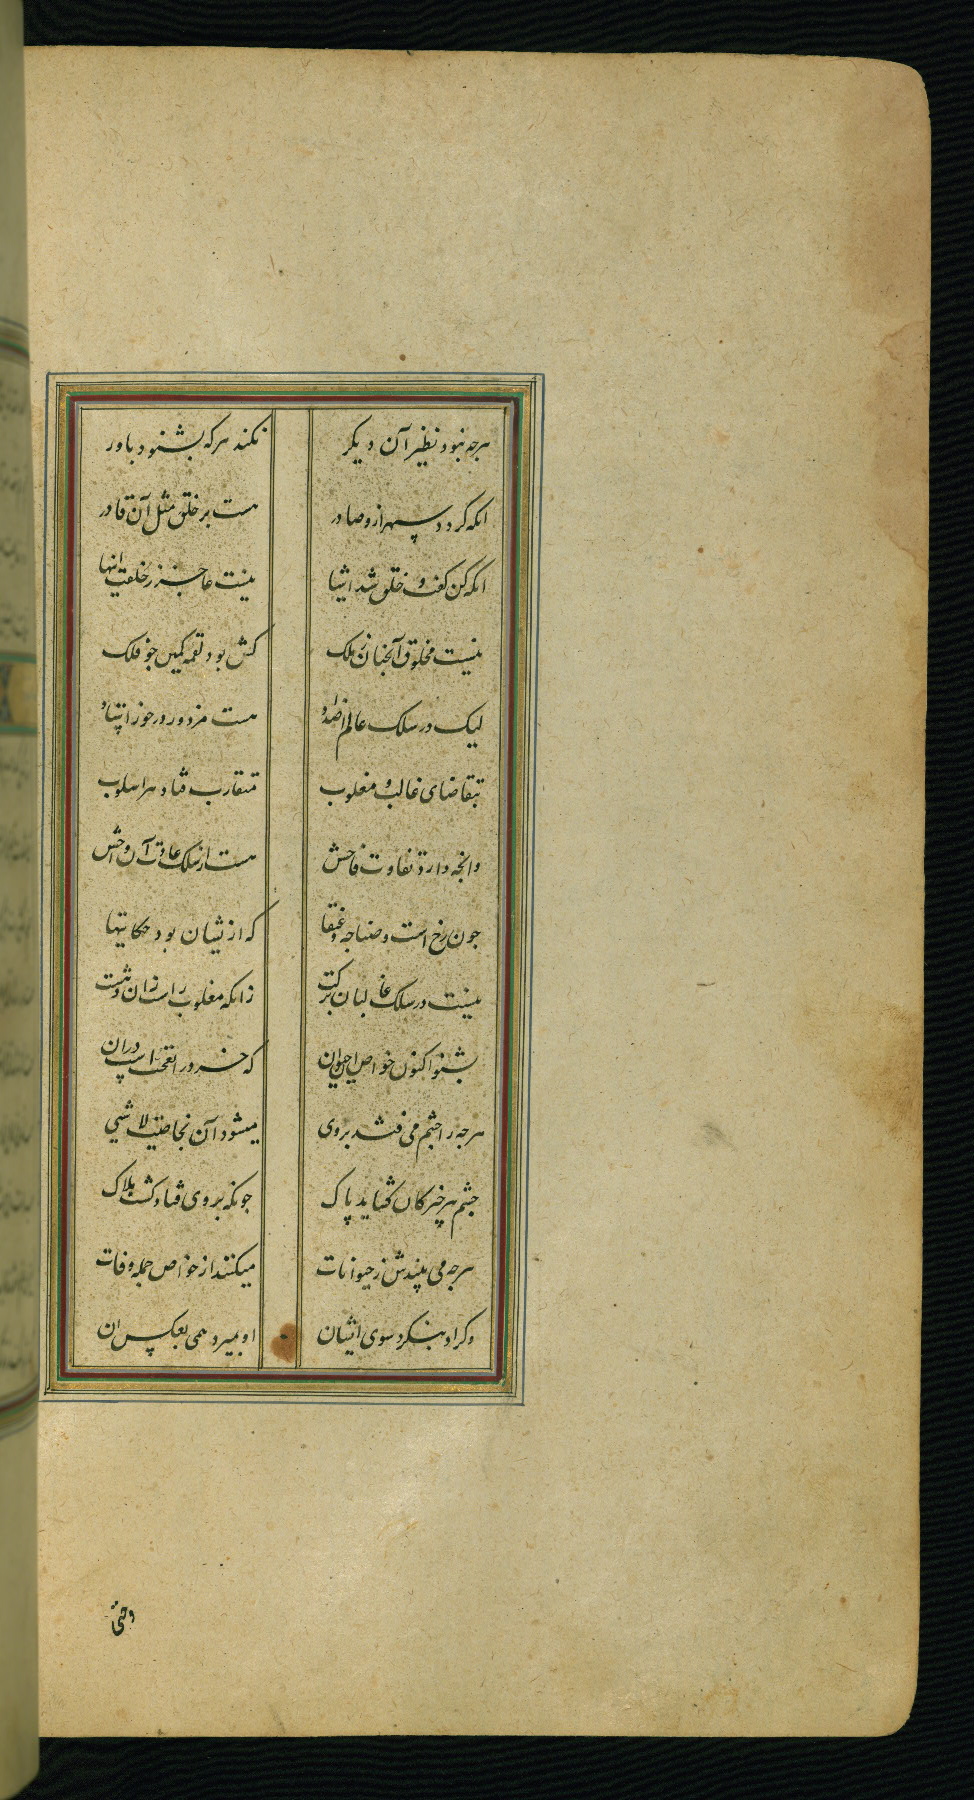 هرچه نبود نظیر آن دیگر نکند هرکه بشنود باور
انکه کردد سپهر ازو صادر هست بر خلق مثل آن قادر
انکه کن کفت و خلق شد اشیا نیست عاجز ز خلقت انها
نیست مخلوق آنچنان زملک کش بود لقمه کمین جو فلک
لیک در سلک عالم اضداد هست مزدور در جوز
بتقاضای غالب و مغلوب متقارب فتاد هر اسلوب
وانچه دارد تفاوت فاحش هست از سلک عادت آن
جون رخ است و ضناجه و عنقا که ازیشان بود حکایتها
نیست در سلک غالبان برکت زانکه مغلوب راست زان
بشنو اکنون خواص این حیوان که خرد در تعجب است دران
هرجه را جشم می فتد بر وی میشود آن بخاصیت لا شی
جشم هر خیر کان کشاید پاک جونکه بر وی فتاد کشت هلاک
هرجه می بیندش ز حیوانات میکنند از خواص جمله وفات
وکر او بنکرد سوی ایشان او بمیرد همی بعکس ان